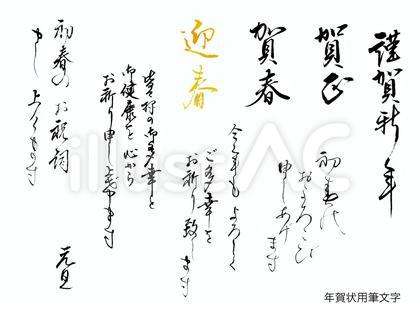 謹賀新年
賀正
初春の
およろこび
申しあげ
ます
賀春
今年もよろしく
ご多幸を
お祈り致し
ます
迎春
皆々様の御多幸と
御健康を心から
お祈り申し上げます
初春のお祝詞
申し上げます
元旦
年賀状用筆文字
illustAC